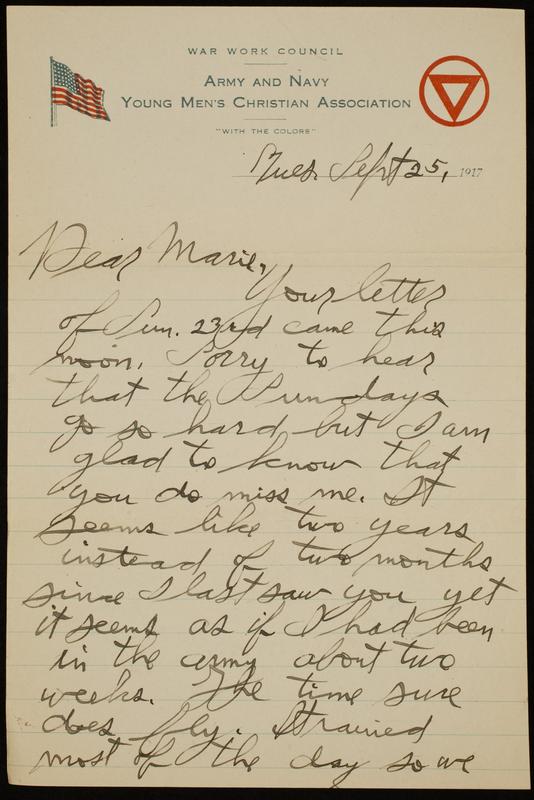 WAR WORK COUNCIL
ARMY AND NAVY
YOUNG MEN'S CHRISTIAN ASSOCIATION
"WITH THE COLORS"
Tues. Sept 25, 1917
Dear Marie,
Your letter
of Sun. 23rd came this
noon. Sorry to hear
that the Sundays
go so hard but I am
glad to know that
you do miss me. It
seems like two years
instead of two months
since I last saw you yet
it seems as if I had been
in the army about two
weeks. The time sure
does fly. It rained
most of the day so we